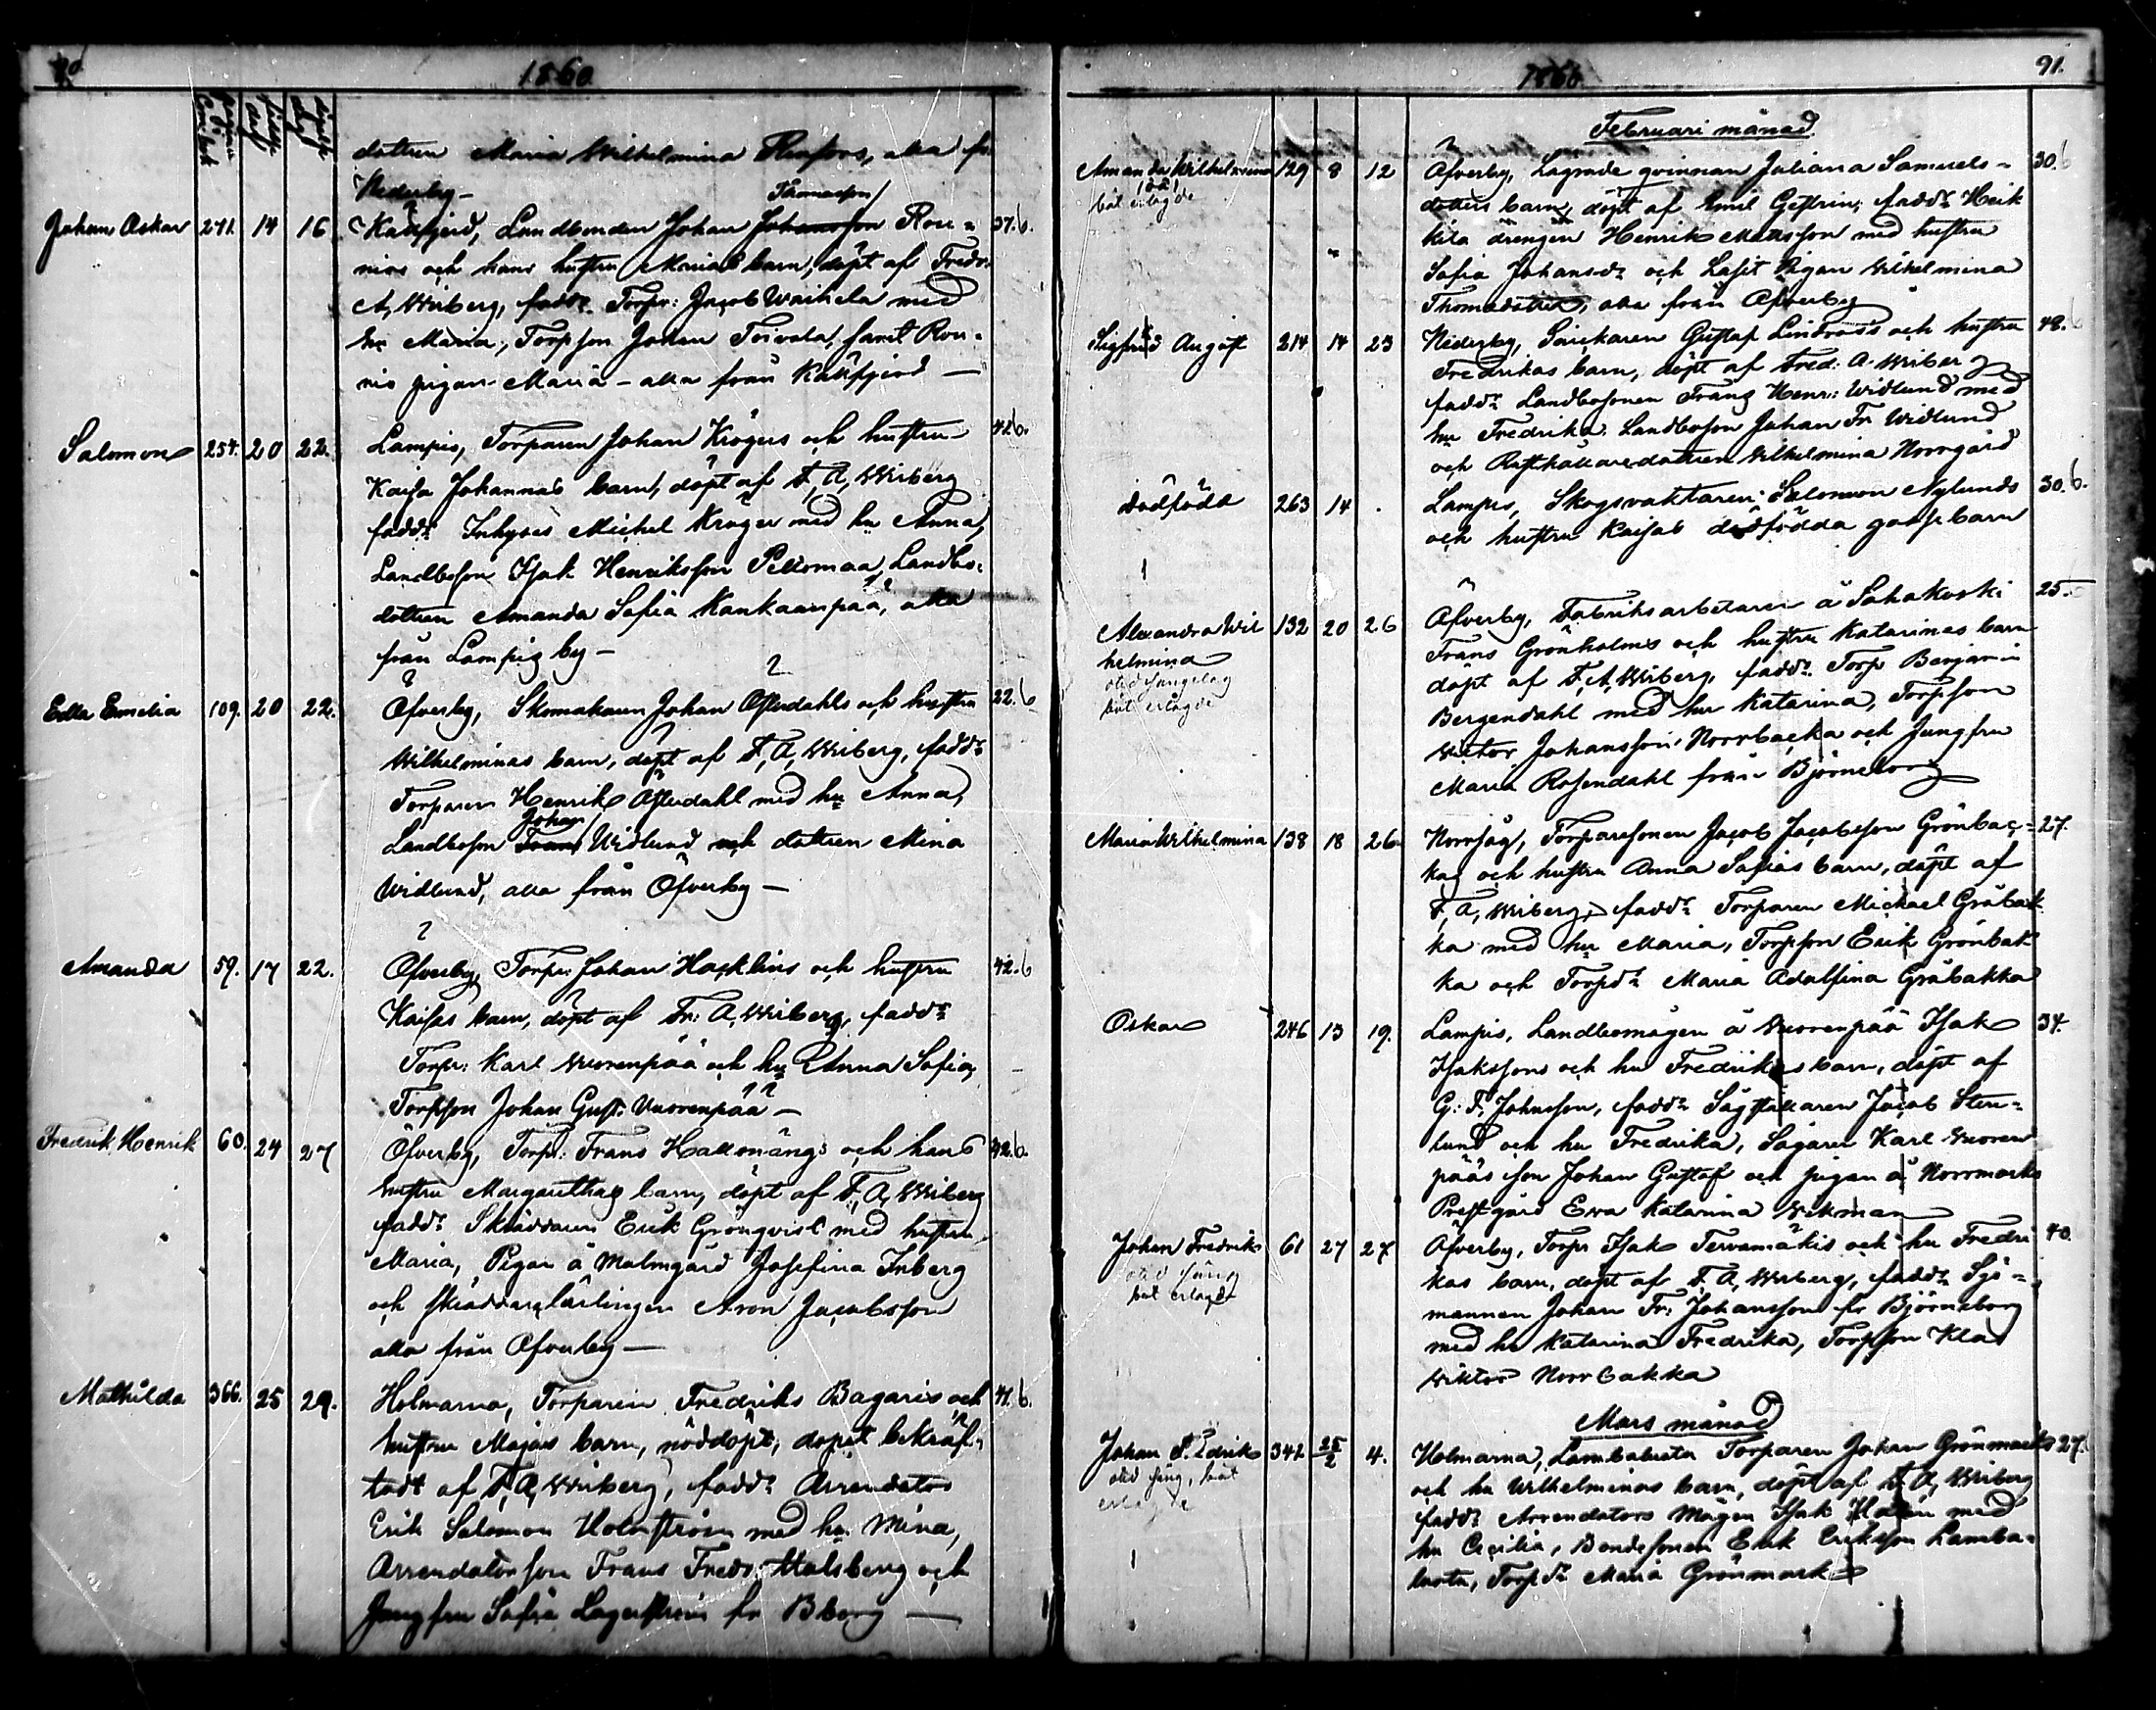 90
1860.
dottren Maria Wilhelmina Renfors, alla fr
Nederby —
Thomasson
Johan Oskar 271. 14 16 Källfjerd, Landbonden Johan Johansson Rosn- 37. 6.
nios och hans hustru Marias barn, döpt af Fredr.
A, Wriberg, fadd:r Torpr: Jacob Waihela med
hu Maria, Torpson Johan Toivola, samt Ron-
nis pigan Maria – alla från Källfjerd —
Salomon 254. 20 22. Lampis, Torparen Johan Krögers och hustru 42 6.
Kaisa Johannas barn, döpt af F, A, Wriberg
fadd:r Inhyses Michel Kröger med hu Anna,
Landboson Isak Henriksson Peltomaa, Landbo-
dottren Amanda Sofia Kankaanpää, alla
från Lampis by —
Edla Emelia 109. 20 22. Öfverby, Skomakaren Johan Österdahls och hustru 22. 6
Wilhelminas barn, döpt af F, A, Wriberg, fadd:r
Torparen Henrik Österdahl med hu Anna,
Johan
Landboson Frans Widlund och dottren Mina
Widlund, alla från Öfverby —
Amanda 59. 17 22. Öfverby, Torpr: Johan Hacklins och hustru 42. 6
Kaisas barn, döpt af Fr: A, Wriberg, fadd:r
Torpr: Karl Vuorenpää och hu Anna Sofia,
Torpson Johan Gust. Vuorenpää —
Fredrik Henrik 60. 24 27 Öfverby, Torpr: Frans Hallonängs och hans 42. 6.
hustru Margarethas barn, döpt af F, A, Wriberg
fadd:r Skräddaren Erik Grönqvist med hustru
Maria, Pigan å Malmgård Josefina Inberg
och skräddarelärlingen Aron Jacobsson
alla från Öfverby —
Mathilda 366. 25 29. Holmarna, Torparen Fredriks Bagaris och 41. 6.
hustru Majas barn, nöddöpt, dopet bekräf-
tadt af F, A, Wriberg, fadd:r Arrendator
Erik Salomon Holmström med hu Mina,
Arrendatorson Frans Fredr. Malsberg och
Jungfru Sofia Lagerström fr Bborg —
1860.
91.
Februari månad
Amanda Wilhelmina 129 8 12 Öfverby, Lägrade qvinnan Juliana Samuels- 30. 6
böt erlagde
dotters barn, döpt af Emil Gestrin; fadd:r Heik
kila drängen Henrik Mattsson med hustru
Sofia Johansd:r och Lasit Pigan Wilhelmina
Thomasdotter, alla från Öfverby
Sigfrid August 214 14 23 Nederby, Snickaren Gustaf Lindroos och hustru 48. 6
Fredrikas barn, döpt af Fred: A. Wriberg
fadd:r Landbosonen Frans Henr: Widlund med
hu Fredrika. Landboson Johan Fr. Widlund
och Rusthållaredottren Wilhelmina Norrgård
Dödfödt 263 14 . Lampis, Skogsvaktaren Salomon Nylunds 30. 6.
och hustru Kaisas dödfödda gossebarn
Alexandra Wil 132 20 26 Öfverby, Fabriksarbetaren å Sahakoski 25.
helmina
böt erlagde
Frans Grönholms och hustru Katarinas barn
döpt af F, A, Wriberg, fadd:r Torp Benjamin
Bergendahl med hu Katarina, Torpson
Victor Johansson Norrbacka och Jungfru
Maria Rosendahl från Björneborg
Maria Wilhelmina 138 18 26. Norrsåg, Torparesonen Jacob Jacobsson Grönbac- 27.
kas och hustru Anna Sofias barn, döpt af
F, A, Wriberg, fadd:r Torparen Michael Gråbak
ka med hu Maria, Torpson Erik Grönbak
ka och Torpd:r Maria Adolfina Gråbakka
Oskar 246 13 19. Lampis, Landbomågen å Vuorenpää Isak 34.
Isakssons och hu Fredrikas barn, döpt af
G: F, Johnsson, fadd:r Sågställaren Jacob Sten-
lund och hu Fredrika, Sågaren Karl Vuoren
pääs son Johan Gustaf och pigan å Norrmarks
Prestgård Eva Katarina Wikman
Johan Fredrik 61 27 27 Öfverby, Torpr Isak Tervamäkis och hu Fredri 40.
böt erlagde
kas barn, döpt af F, A, Wriberg, fadd:r Sjö-
mannen Johan Fr: Johansson fr Björneborg
med hu Katarina Fredrika, Torpson Klas
Wiktor Norrbakka
Mars månad
Johan Fredrik 342 25/2 4. Holmarna, Lambaluota Torparen Johan Grönmarks 27.
böt
erlagde
och hu Wilhelminas barn, döpt af F, A, Wriberg
fadd:r Arrendators Mågen Isak Holén med
hu Cecilia, Bondesonen Erik Eriksson Lamba-
luota, Torpd:r Maria Grönmark